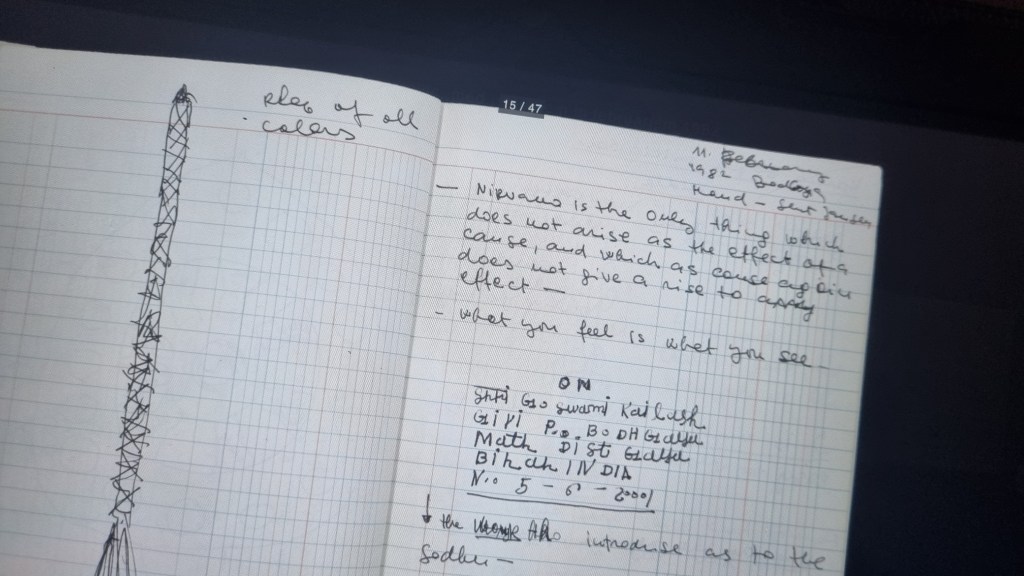 play of all
colors
15 / 47
11. February
1982 Bodhgaya
Hand –
— Nirvana is the only thing which
does not arise as the effect of a
cause, and which as cause again
does not give a rise to
effect —
- What you feel is what you see -
ON
Shri Goswami Kailash
Giri P.O. BODHGaya
Math Dist Gaya
Bihar INDIA
No. 5 - 6 - 2000/
↓ the introduise as to the